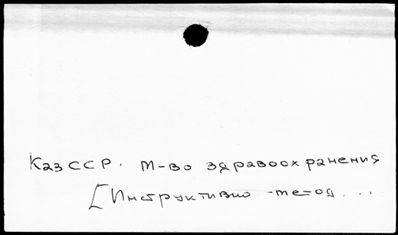 КазССР. М-во здравоохранения
[Инструктивно-метод...